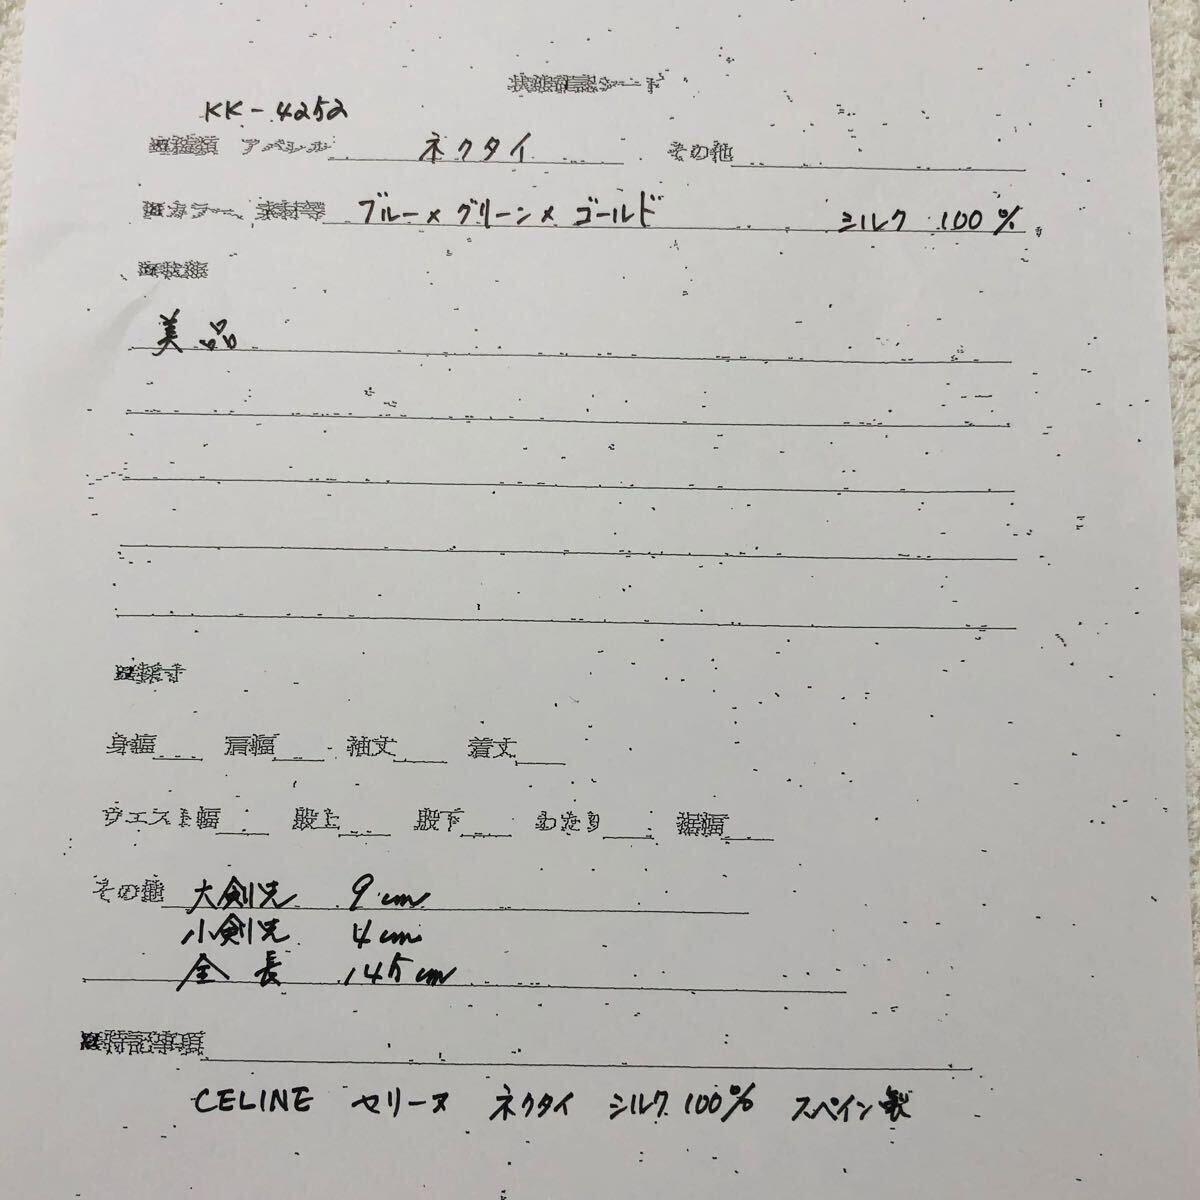 状態確認シート
KK-4252
☒種類 アパレル ネクタイ その他
☒カラー、素材等 ブルー×グリーン×ゴールド シルク 100%
☒状態
美品
☒採寸
身幅 肩幅 袖丈 着丈
ウエスト幅 股上 股下 わたり 裾幅
その他 大剣先 9cm
小剣先 4cm
全長 145cm
☒特記事項
CELINE セリーヌ ネクタイ シルク 100% スペイン製